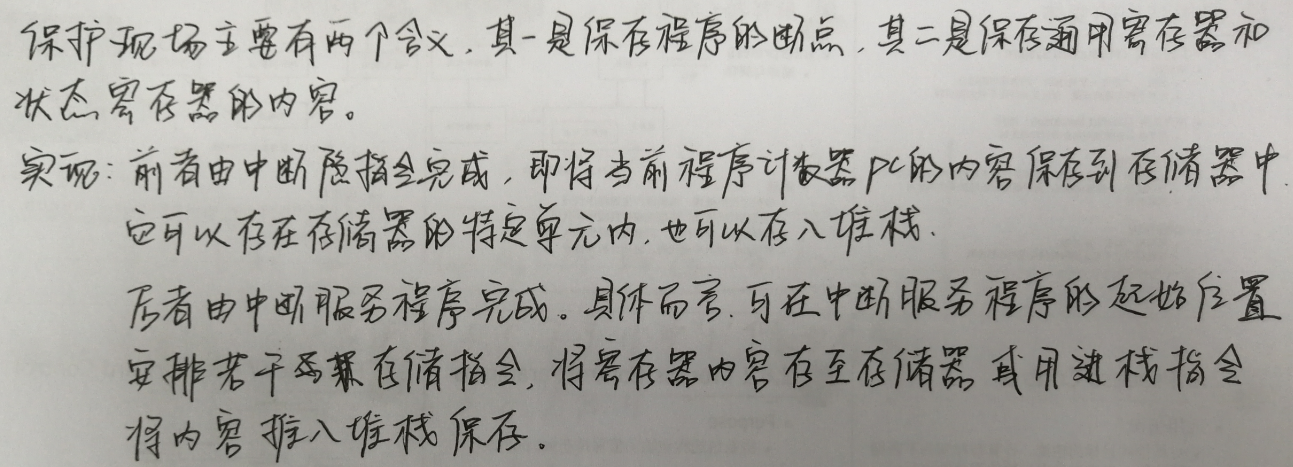 保护现场主要有两个含义,其一是保存程序的断点,其二是保存通用寄存器和
状态寄存器的内容。
实现:前者由中断隐指令完成,即将当前程序计数器PC的内容保存到存储器中.
它可以存在存储器的特定单元内,也可以存入堆栈.
后者由中断服务程序完成。具体而言,可在中断服务程序的起始位置
安排若干条存储指令,将寄存器内容存至存储器或用进栈指令
将内容推入堆栈保存。